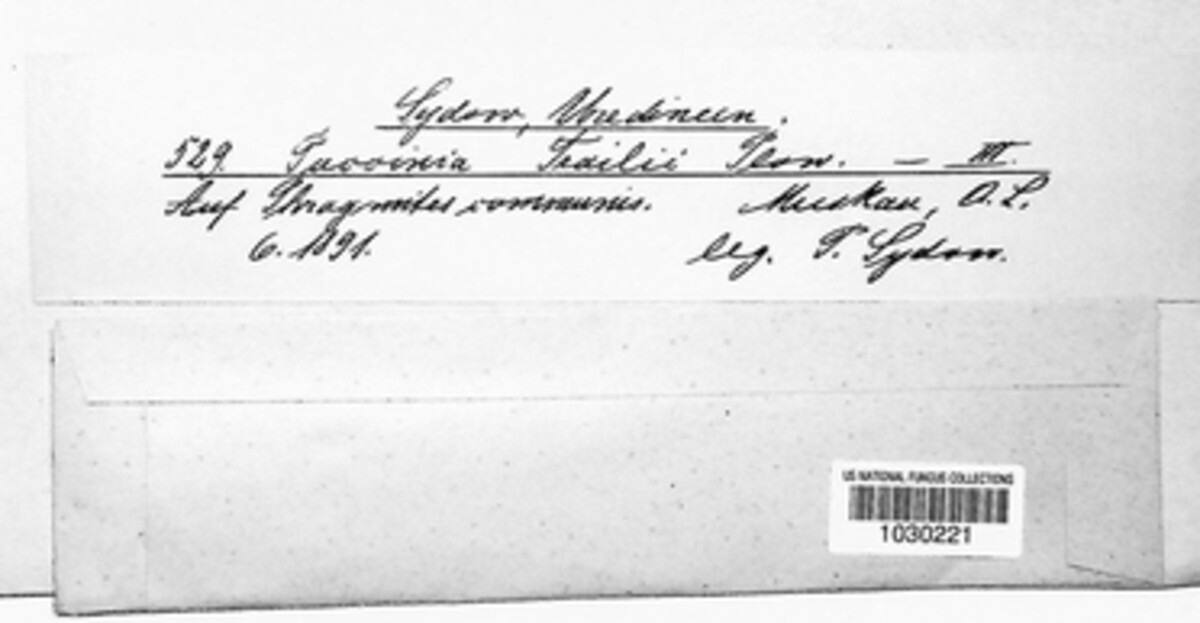 Sydow, Uredineen.
529. Puccinia Trailii Plow. — III.
Auf Phragmites communis. Muskau, O. L.
6. 1891. leg. P. Sydow.
US NATIONAL FUNGUS COLLECTIONS
1030221